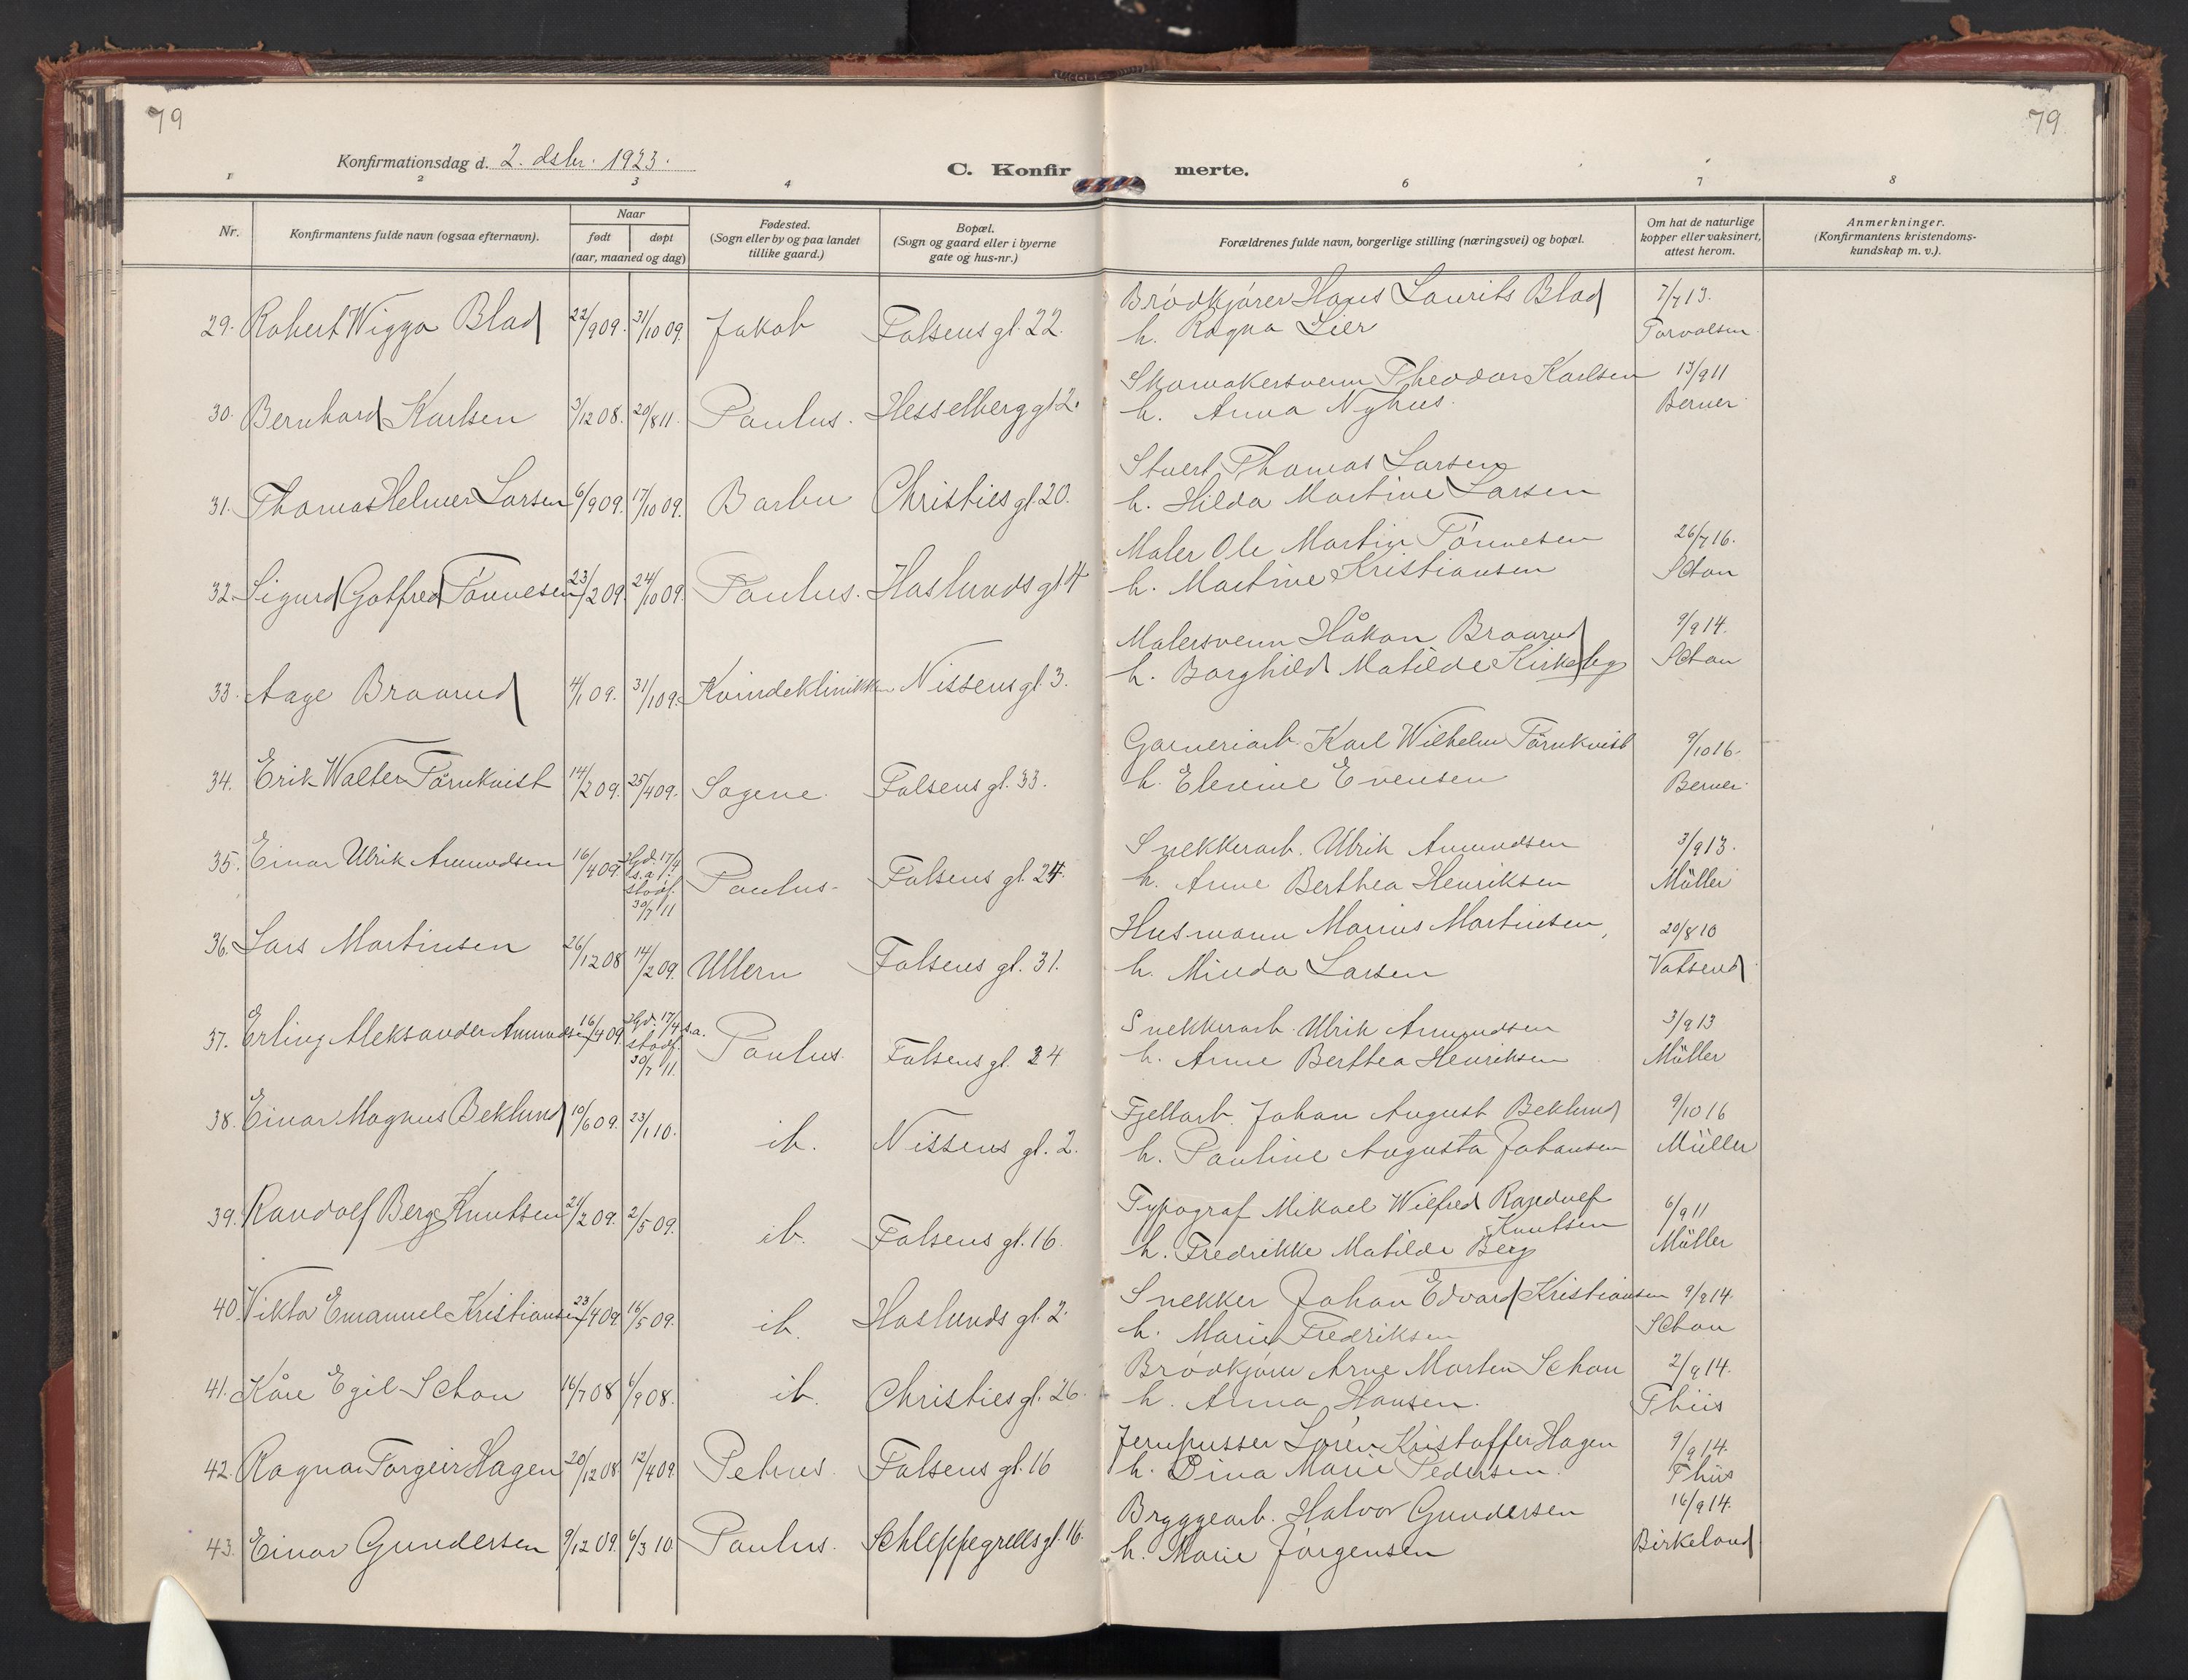 79
79
Konfirmationsdag d. 2. dsbr. 1923.
C. Konfirmerte.
1 2 3 4 6 7 8
Nr.
Konfirmantens fulde navn (ogsaa efternavn).
Naar
født døpt
(aar, maaned og dag)
Fødested.
(Sogn eller by og paa landet
tillike gaard.)
Bopæl.
(Sogn og gaard eller i byerne
gate og hus-nr.)
Forældrenes fulde navn, borgerlige stilling (næringsvei) og bopæl.
Om hat de naturlige
kopper eller vaksinert,
attest herom.
Anmerkninger.
(Konfirmantens kristendoms-
kundskap m. v.).
Brödkjörer Hans Laurits Blad 7/7 13.
29. Robert Wiggo Blad 22/9 09. 31/10 09. Jakob Falsens gt. 22.
h. Ragna Lier Torvalsen
Skomakersvenn Theodor Karlsen 13/9 11
30. Bernhard Karlsen 3/12 08. 20/8 11. Paulus. Hesselberg gt 2.
h. Anna Nyhus. Berner
Stuert Thomas Larsen
31. Thomas Helmer Larsen 6/9 09. 17/10 09. Barbu Christies gt 20.
h. Hilda Martine Larsen
Maler Ole Martin Tönnesen 26/7 16.
32. Sigurd Gotfred Tönnesen 23/2 09. 24/10 09. Paulus. Haslunds gt 4
h. Martine Kristiansen Schou
Malersvenn Håkon Braarud 9/9 14.
h. Borghild Matilde Kirkeby Schou
33. Aage Braarud 4/1 09. 31/1 09. Kvindeklinikken Nissens gt. 3.
Garveriarb. Karl Wilhelm Törnkvist 9/10 16.
34. Erik Walter Törnkvist 14/2 09. 25/4 09. Sagene. Falsens gt. 33.
h. Elevine Evensen Berner
Snekkerarb. Ulrik Amundsen 3/9 13.
35. Einar Ulrik Amundsen 16/4 09. Hjd. 17/4
s. a.
stadf.
30/7 11
Paulus. Falsens gt. 24.
h. Anne Berthea Henriksen Müller
Husmann Marius Martinsen, 20/8 10
36. Lars Martinsen 26/12 08 14/2 09. Ullern Falsens gt. 31.
h. Minda Larsen Vatsend
Snekkerarb. Ulrik Amundsen 3/9 13
37. Erling Aleksander Amundsen 16/4 09 Hjd. 17/4 s.a.
stadf.
30/7 11.
Paulus. Falsens gt. 24
h. Anne Berthea Henriksen Müller
Fjellarb. Johan August Beklund 9/10 16
38. Einar Magnus Beklund 10/6 09. 23/1 10. ib. Nissens gt. 2.
h. Pauline Augusta Johansen Müller
Typograf Mikael Wilfred Randulf 6/9 11
Knutsen
39. Randolf Berg Knutsen 21/2 09. 2/5 09. ib. Falsens gt. 16.
h. Fredrikke Matilde Berg Müller
Snekker Johan Edvard Kristiansen 9/9 14.
40. Viktor Emanuel Kristiansen 23/4 09 16/5 09. ib. Haslunds gt. 2.
h. Marie Fredriksen Schou
Brödkjörer Arne Morten Schou 2/9 14.
41. Kåre Egil Schou 16/7 08 6/9 08. ib. Christies gt. 26.
h. Anna Hansen. Thiis
Jernpusser Sören Kristoffer Hagen 9/9 14.
42. Ragnar Torgeir Hagen 20/12 08 12/4 09. Petrus. Falsens gt. 16
h. Dina Marie Pedersen. Thiis
Bryggearb. Halvor Gundersen 16/9 14.
43. Einar Gundersen 9/12 09. 6/3 10. Paulus. Schleppegrells gt. 16.
h. Marie Jörgensen Birkeland